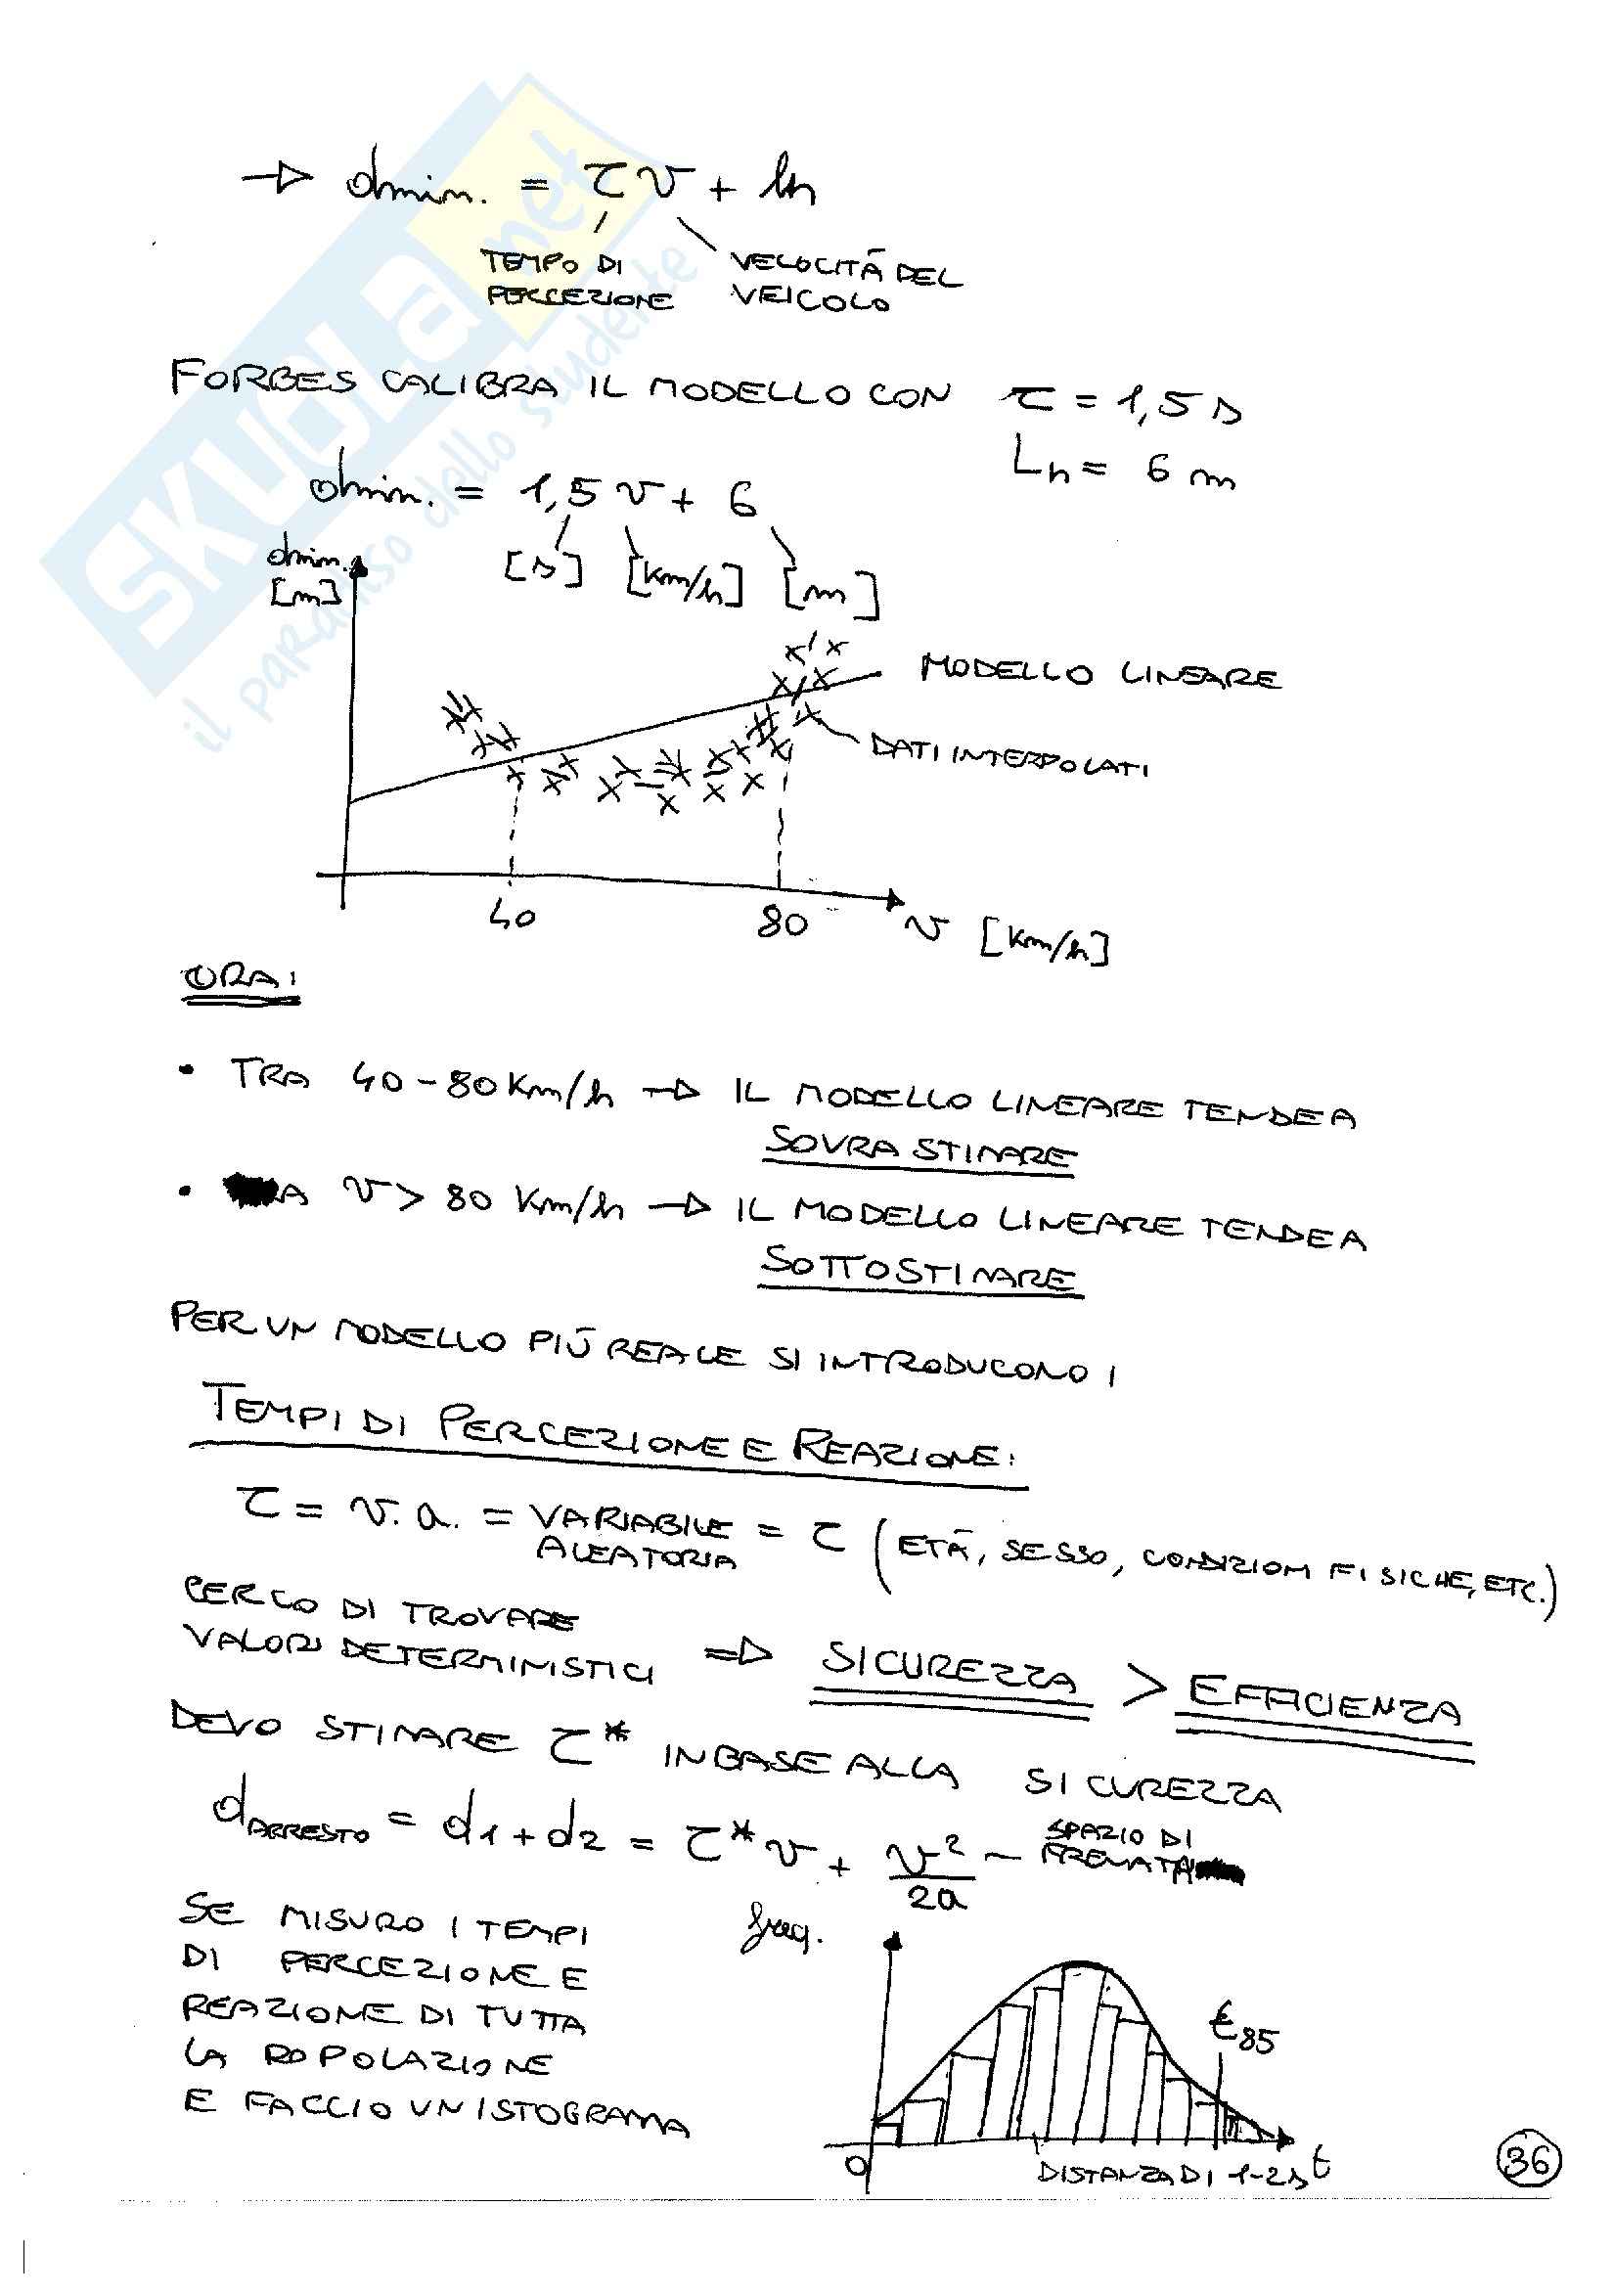 → dmin. = τ v + ln
TEMPO DI PERCEZIONE
VELOCITÀ DEL VEICOLO
FORBES CALIBRA IL MODELLO CON τ = 1,5 s
Ln = 6 m
dmin. = 1,5 v + 6
[s] [km/h] [m]
dmin. [m]
MODELLO LINEARE
DATI INTERPOLATI
40 80 v [km/h]
ORA:
• TRA 40-80 Km/h → IL MODELLO LINEARE TENDE A
SOVRASTIMARE
• A v > 80 Km/h → IL MODELLO LINEARE TENDE A
SOTTOSTIMARE
PER UN MODELLO PIÙ REALE SI INTRODUCONO I
TEMPI DI PERCEZIONE E REAZIONE:
τ = v.a. = VARIABILE ALEATORIA = τ (ETÀ, SESSO, CONDIZIONI FISICHE, ETC.)
CERCO DI TROVARE
VALORI DETERMINISTICI ⇒ SICUREZZA > EFFICIENZA
DEVO STIMARE τ* IN BASE ALLA SICUREZZA
dARRESTO = d1 + d2 = τ* v + v²/2a ~ SPAZIO DI FRENATA
SE MISURO I TEMPI
DI PERCEZIONE E
REAZIONE DI TUTTA
LA POPOLAZIONE
E FACCIO UN ISTOGRAMA
freq.
t85
0 DISTANZA DI 1-2s t
36
SKUOLA.net
il paradiso dello studente